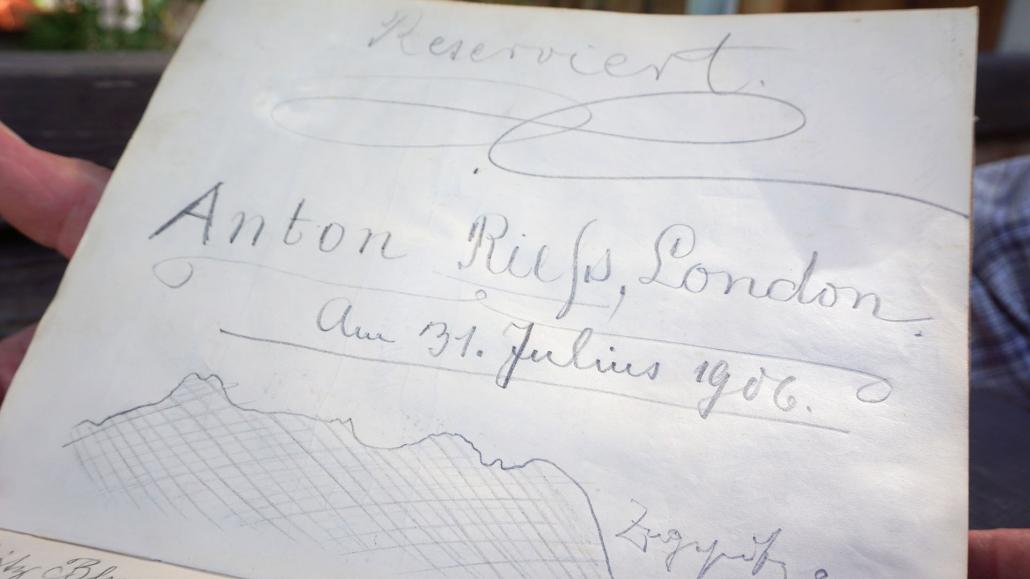 Reserviert.
Anton Rieſs, London.
Am 31. Julius 1906.
Zugspitz